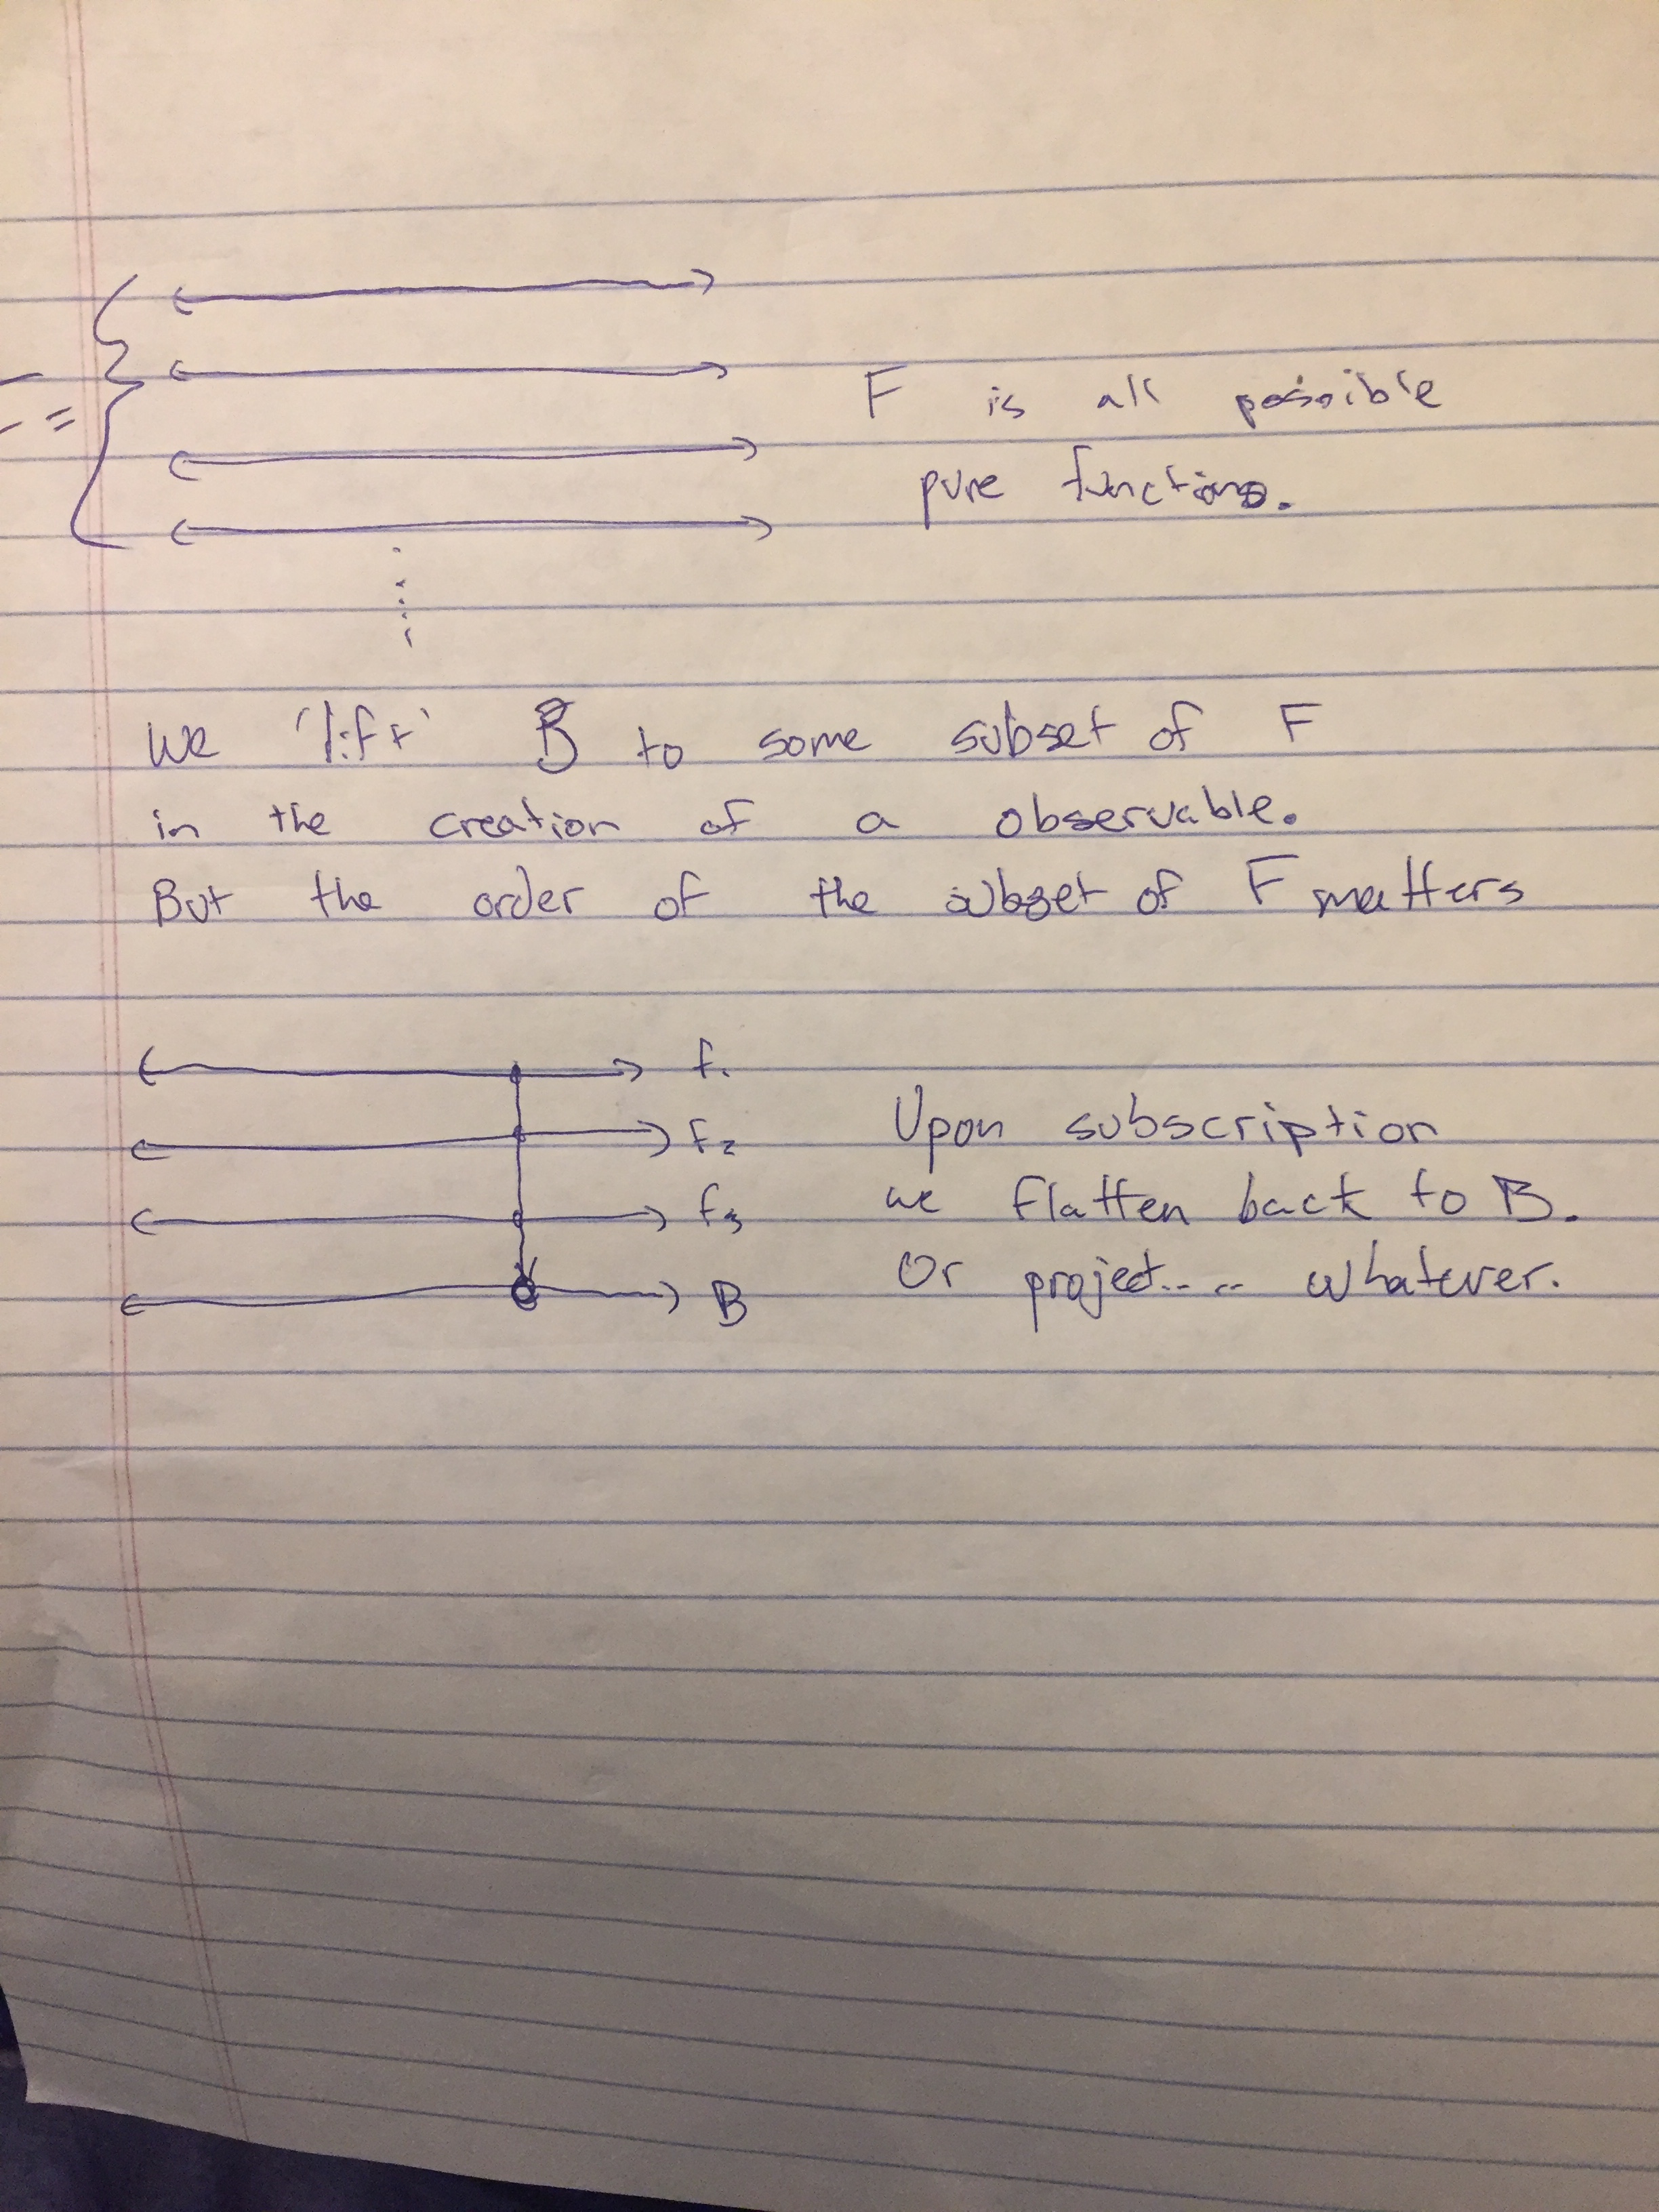 F =
F is all possible
pure functions.
We 'lift' B to some subset of F
in the creation of a observable.
But the order of the subset of F matters
f₁
f₂
f₃
B
Upon subscription
we flatten back to B.
Or project.... whatever.